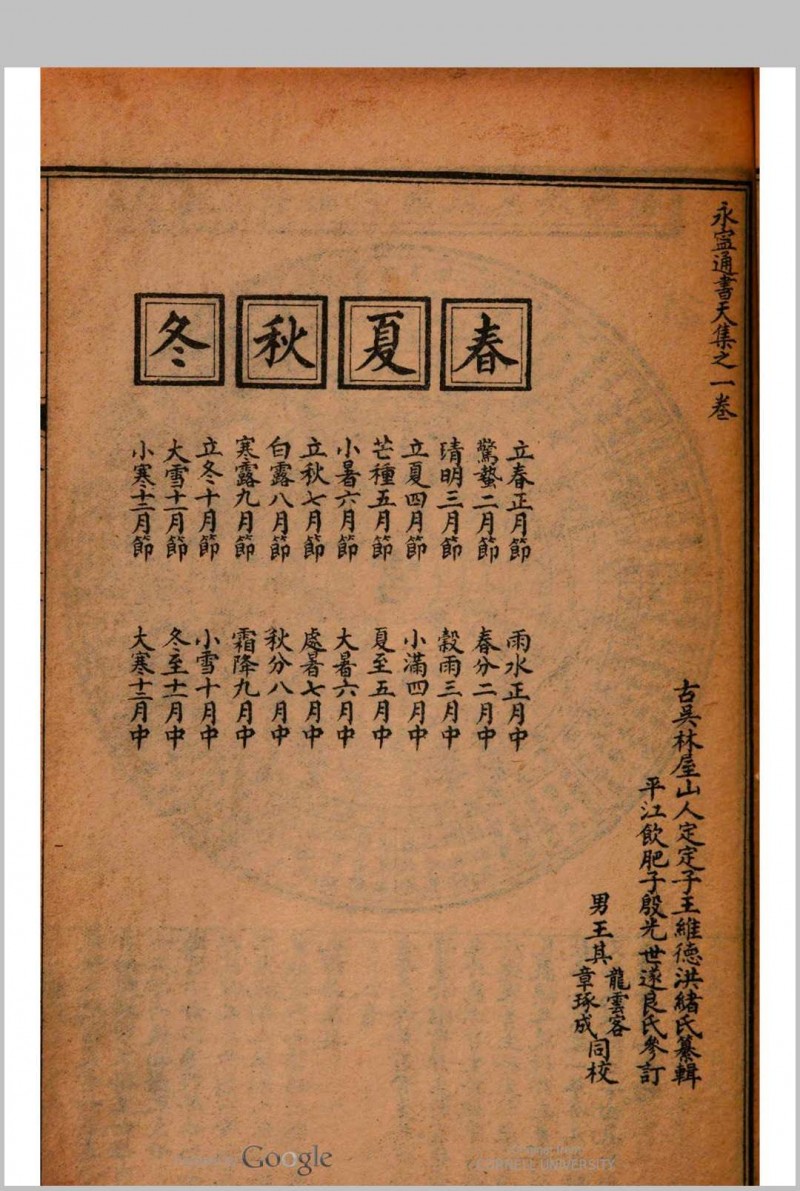 永寍通書天集之一卷
古吳林屋山人定定子王維德洪緒氏纂輯
平江飲肥子殷光世遂良氏參訂
男王其龍雲客章琢成同校
春
夏
秋
冬
立春正月節 雨水正月中
驚蟄二月節 春分二月中
清明三月節 穀雨三月中
立夏四月節 小滿四月中
芒種五月節 夏至五月中
小暑六月節 大暑六月中
立秋七月節 處暑七月中
白露八月節 秋分八月中
寒露九月節 霜降九月中
立冬十月節 小雪十月中
大雪十一月節 冬至十一月中
小寒十二月節 大寒十二月中
Google
CORNELL UNIVERSITY